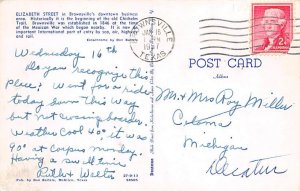 ELIZABETH STREET in Brownsville's downtown business
area. Historically it is the beginning of the old Chisholm
Trail. Brownsville was established in 1846 at the time
of the Mexican War which began nearby. It is now an
important international port of entry by sea, air, highway
and rail.
BROWNSVILLE
JAN 16
PM
TEXAS
Wednesday 16th
Do you recognize this
place? Went for a ride
today down this way
but not crossing border
Weather Cool 40° it was
90° at Corpus monday.
Having a swell time
Ruth & Walter
POST CARD
Address
Mr. & Mrs Roy Miller
Coloma
Michigan
Decatur